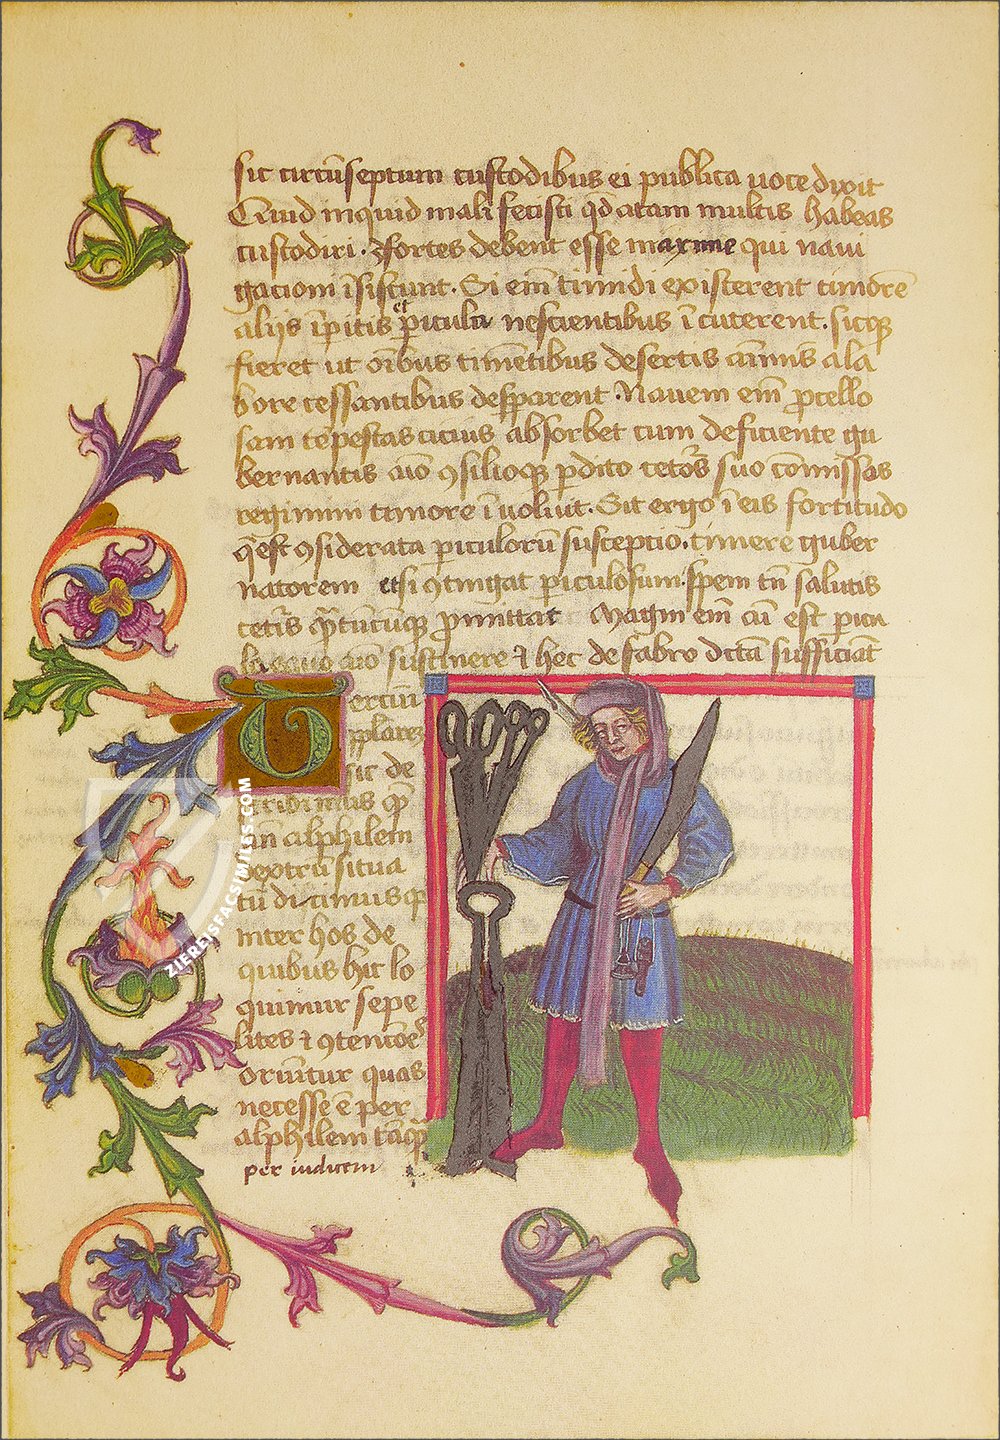 sic circũseptum custodibus ei publica uoce dixit
Quid inquid mali fecisti qd atam multis habeas
custodiri . ꝯfortes debent esse maxime qui naui
gationi ĩsistunt . Si em̃ timidi existerent timorẽ
et
alijs ĩpitis pericula nescientibus ĩcuterent . sicqꝫ
fieret ut oĩbus timẽtibus desertis animis a la
bore cessantibus desperent . Nauem em̃ procello
sam tẽpestas cicius absorbet cum deficiente gu
bernantis aĩo ꝯsilioqꝫ perdito ceteros suo cõmissos
regimini timore ĩuoluit . Sit ergo ĩ eis fortitudo
que est ꝯsiderata periculorũ susceptio . timere guber
natorem etsi ꝯtingat periculosum . spem tñ salutis
ceteris quãtũcũqꝫ promittat Magni em̃ aĩ est pericu
la equo aĩo sustinere ⁊ hec de fabro dicta sufficiãt
Terciũ
pplares
sic de
scribimus qꝫ
añ alphilem
dextrũ situa
tũ dicimus qꝫ
inter hos de
quibus hic lo
quimur sepe
lites ⁊ ꝯtencões
oriũtur quas
necesse ẽ per
alphilem tãqꝫ
per iudicem
ZIEREISFACSIMILES.COM